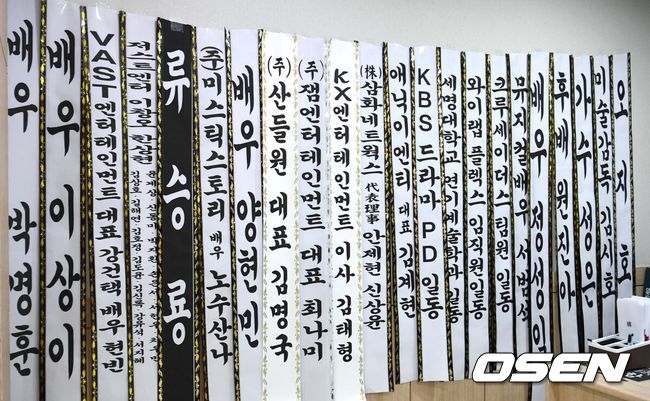 배우 박명훈
배우 이상이
VAST엔터테인먼트 대표 강건택 배우 현빈
류승룡
(주)미스틱스토리 배우 노수산나
배우 양현민
(주)산들원 대표 김명국
(주)잼엔터테인먼트 대표 최나미
KX엔터테인먼트 이사 김태형
(株)삼화네트웍스 代表理事 안제현 신상윤
애닉이엔티 대표 김계현
KBS 드라마 PD 일동
세명대학교 연기예술학과 일동
와이랩 플렉스 임직원일동
크루세이더스팀원 일동
뮤지컬배우 서범석
배우 정성일
후배 원진아
가수 성은
미술감독 김시호
오지호
OSEN